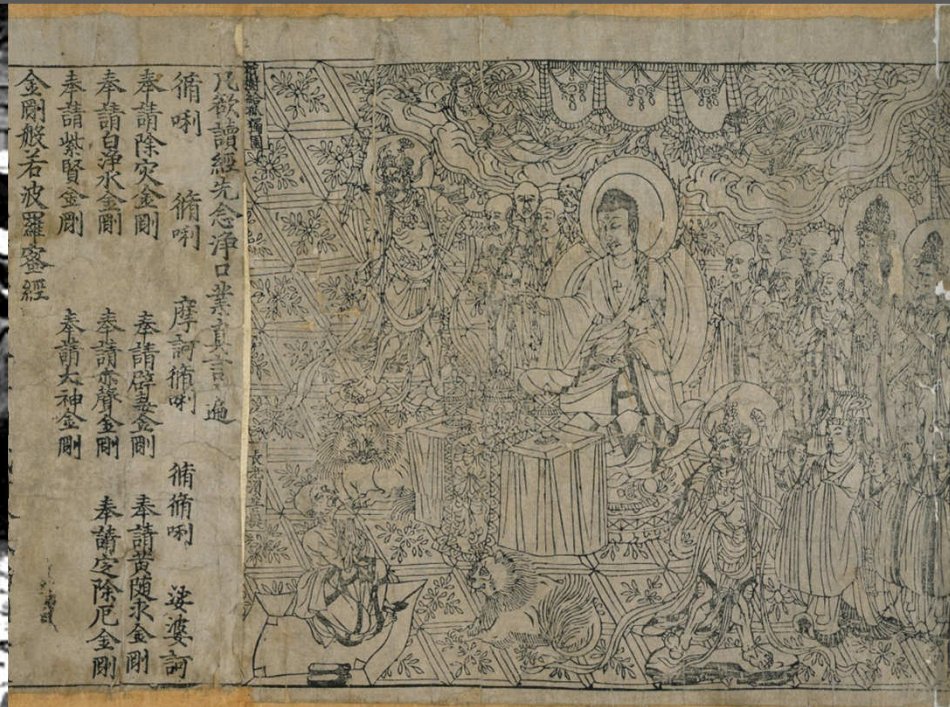 祇樹給孤獨園
長老須菩提
凡欲讀經先念淨口業真言一遍
脩唎 脩唎 摩訶脩唎 脩脩唎 娑婆訶
奉請除灾金剛 奉請辟毒金剛 奉請黄随求金剛
奉請白淨水金剛 奉請赤聲金剛 奉請定除厄金剛
奉請紫賢金剛 奉請大神金剛
金剛般若波羅蜜經